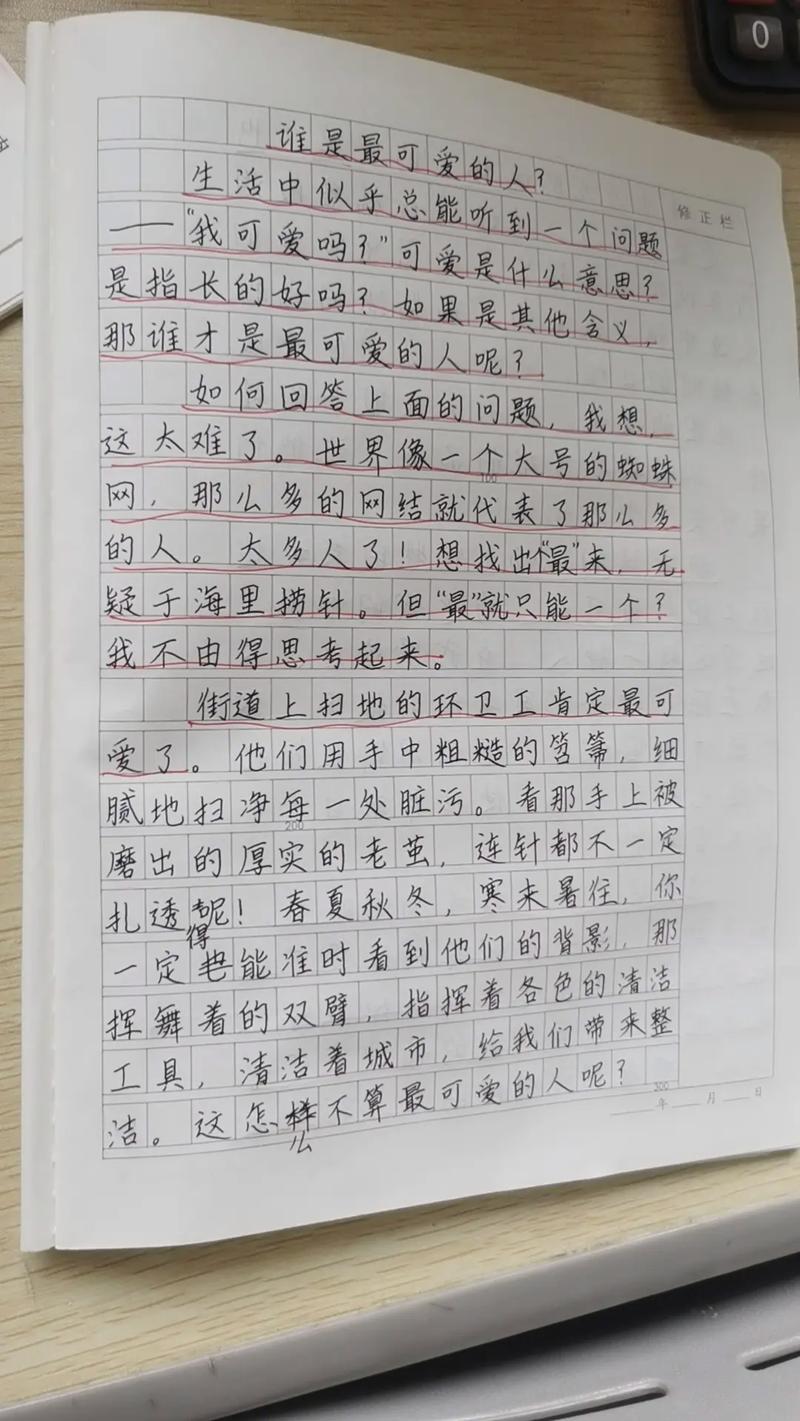 谁是最可爱的人?
生活中似乎总能听到一个问题
——“我可爱吗?”可爱是什么意思?
是指长的好吗?如果是其他含义,
那谁才是最可爱的人呢?
如何回答上面的问题,我想,
这太难了。世界像一个大号的蜘蛛
100
网,那么多的网结就代表了那么多
的人。太多人了!想找出个“最”来,无
疑于海里捞针。但“最”就只能一个?
我不由得思考起来。
街道上扫地的环卫工肯定最可
爱了。他们用手中粗糙的笤箒,细
腻地扫净每一处脏污。看那手上被
200
磨出的厚实的老茧,连针都不一定
扎透呢!春夏秋冬,寒来暑往,你
得
一定能准时看到他们的背影,那
挥舞着的双臂,指挥着各色的清洁
工具,清洁着城市,给我们带来整
洁。这怎样不算最可爱的人呢?
么
300
修正栏
年 月 日
0